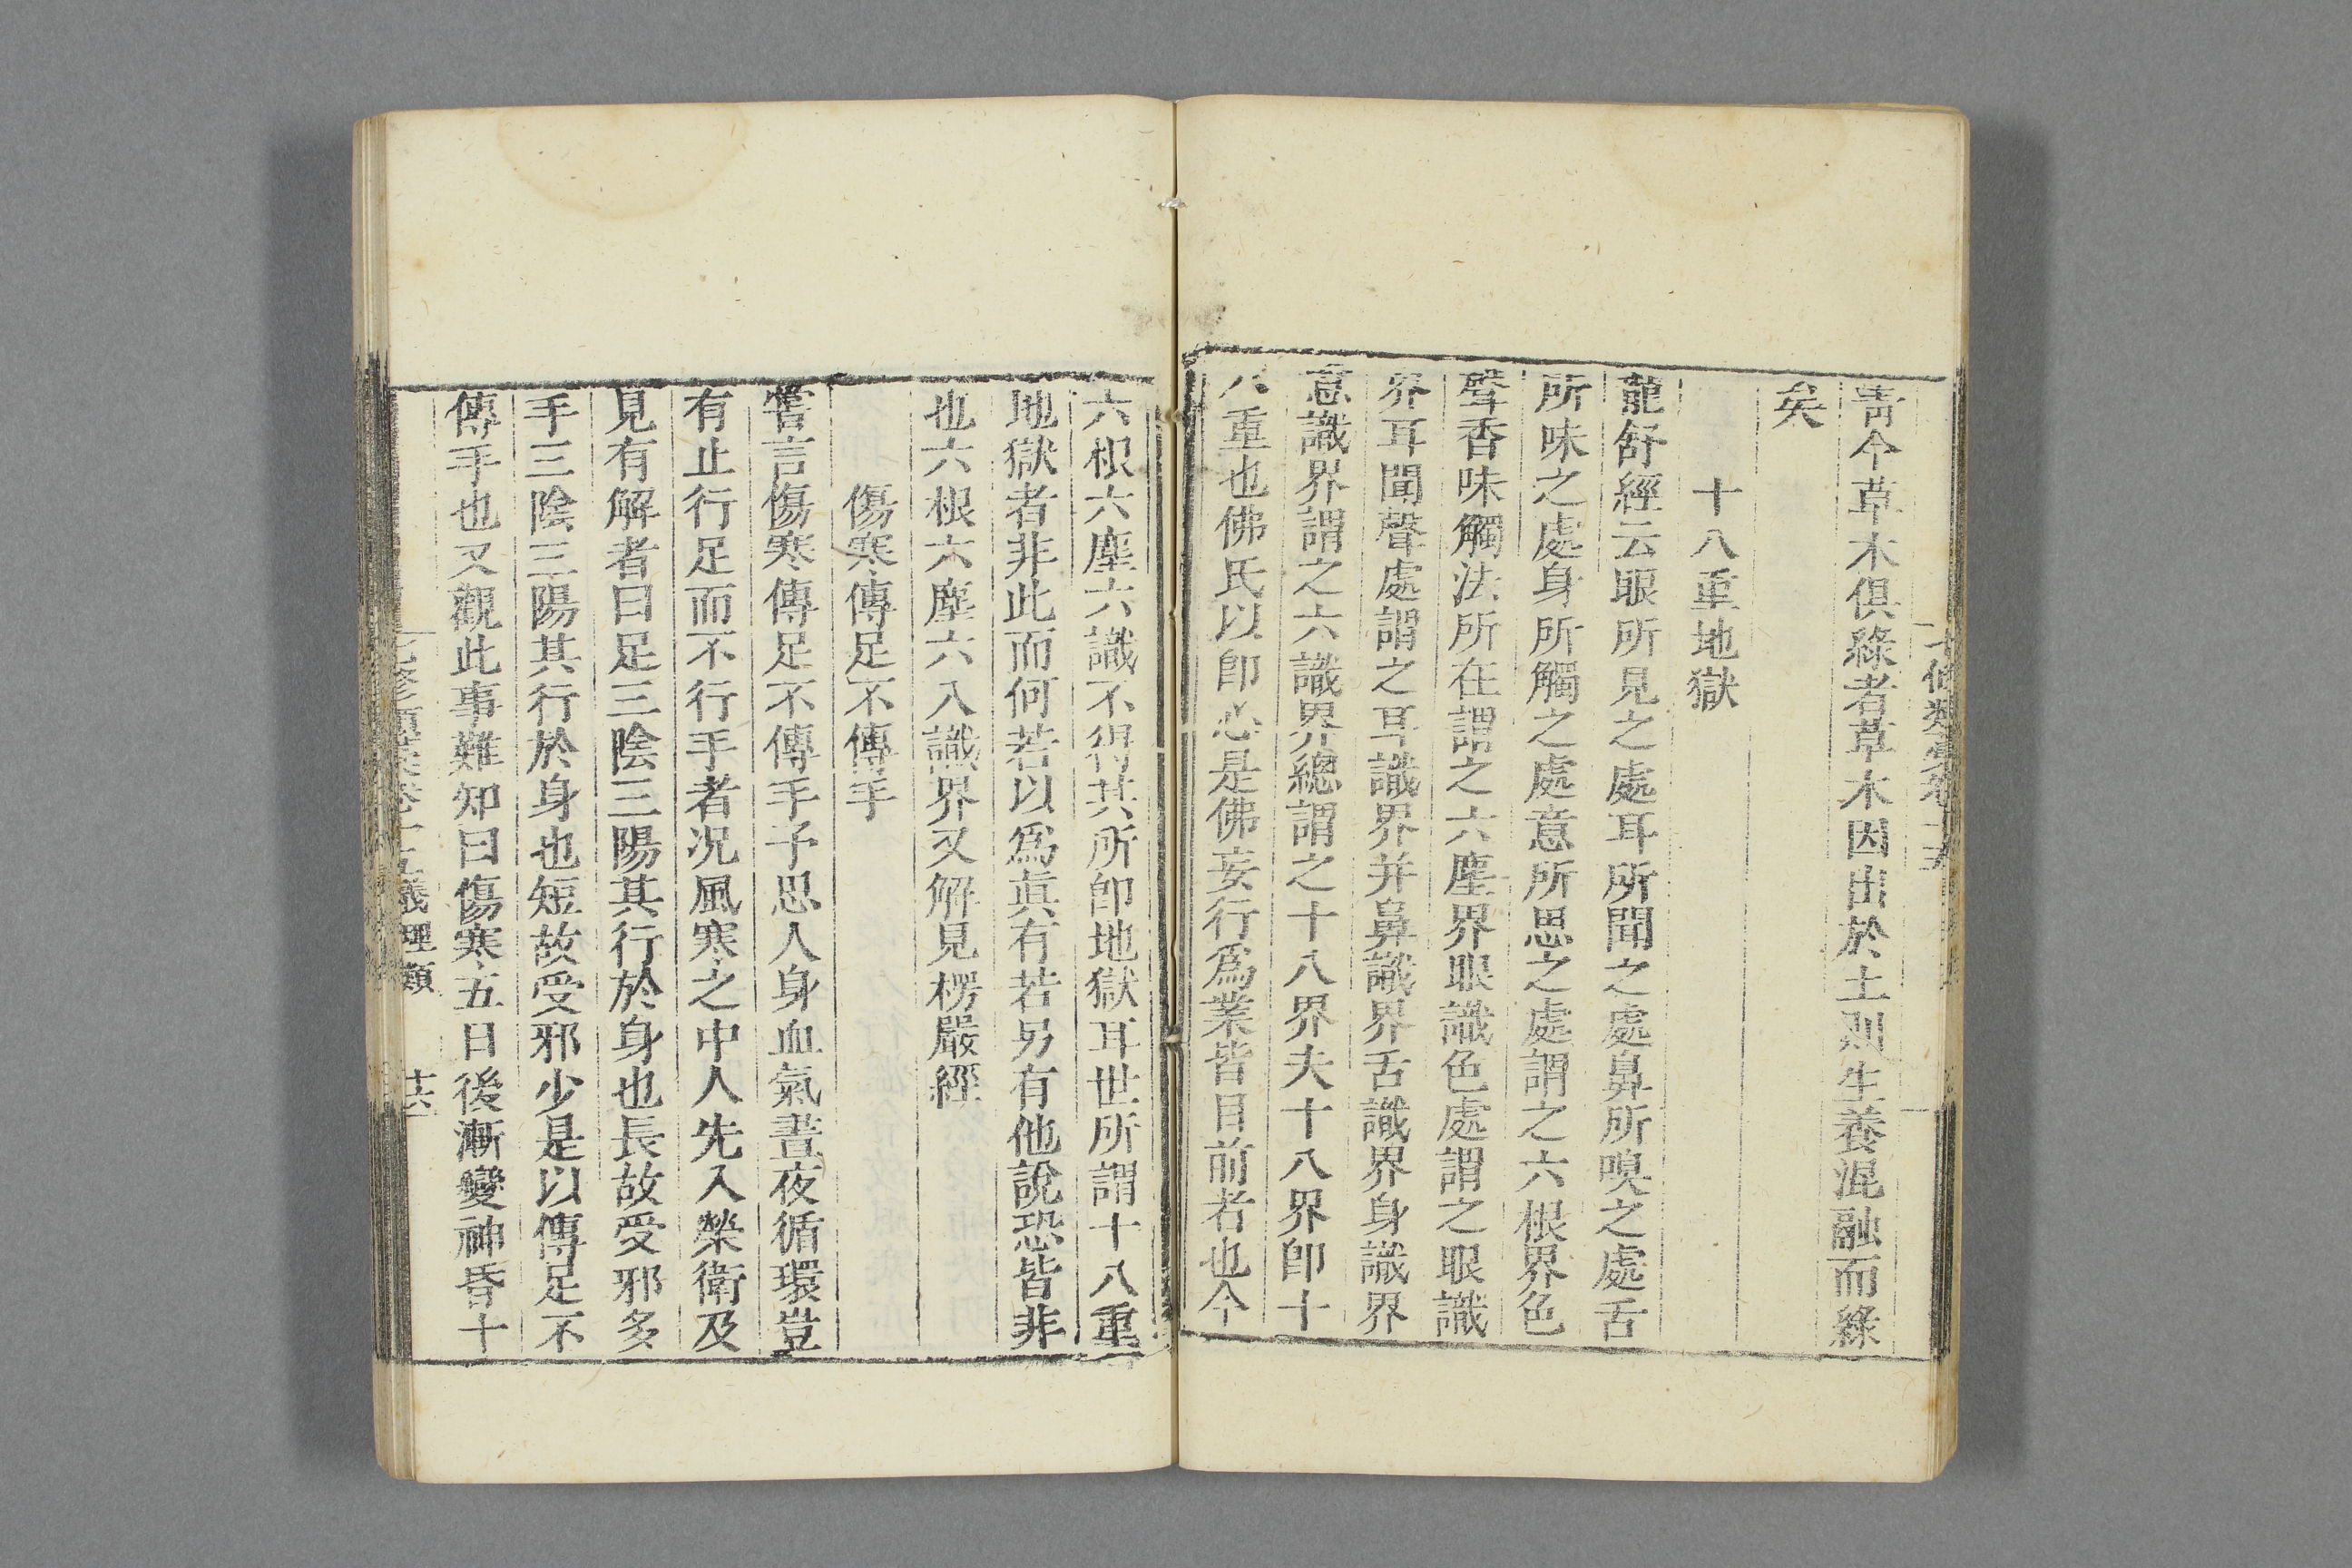 青今草木俱綠者草木因出於土則生養混融而綠
矣
十八重地獄
龍舒經云眼所見之處耳所聞之處鼻所嗅之處舌
所味之處身所觸之處意所思之處謂之六根界色
聲香味觸法所在謂之六塵界眼識色處謂之眼識
界耳聞聲處謂之耳識界并鼻識界舌識界身識界
意識界謂之六識界總謂之十八界夫十八界卽十
八重也佛氏以卽心是佛妄行爲業皆目前者也今
六根六塵六識不得其所卽地獄耳世所謂十八重
地獄者非此而何若以爲眞有若另有他說恐皆非
也六根六塵六入識界又解見楞嚴經
傷寒傳足不傳手
嘗言傷寒傳足不傳手予思人身血氣晝夜循環豈
有止行足而不行手者况風寒之中人先入榮衛及
見有解者曰足三陰三陽其行於身也長故受邪多
手三陰三陽其行於身也短故受邪少是以傳足不
傳手也又觀此事難知曰傷寒五日後漸變神昏十
七修類藁卷十五義理類 十六